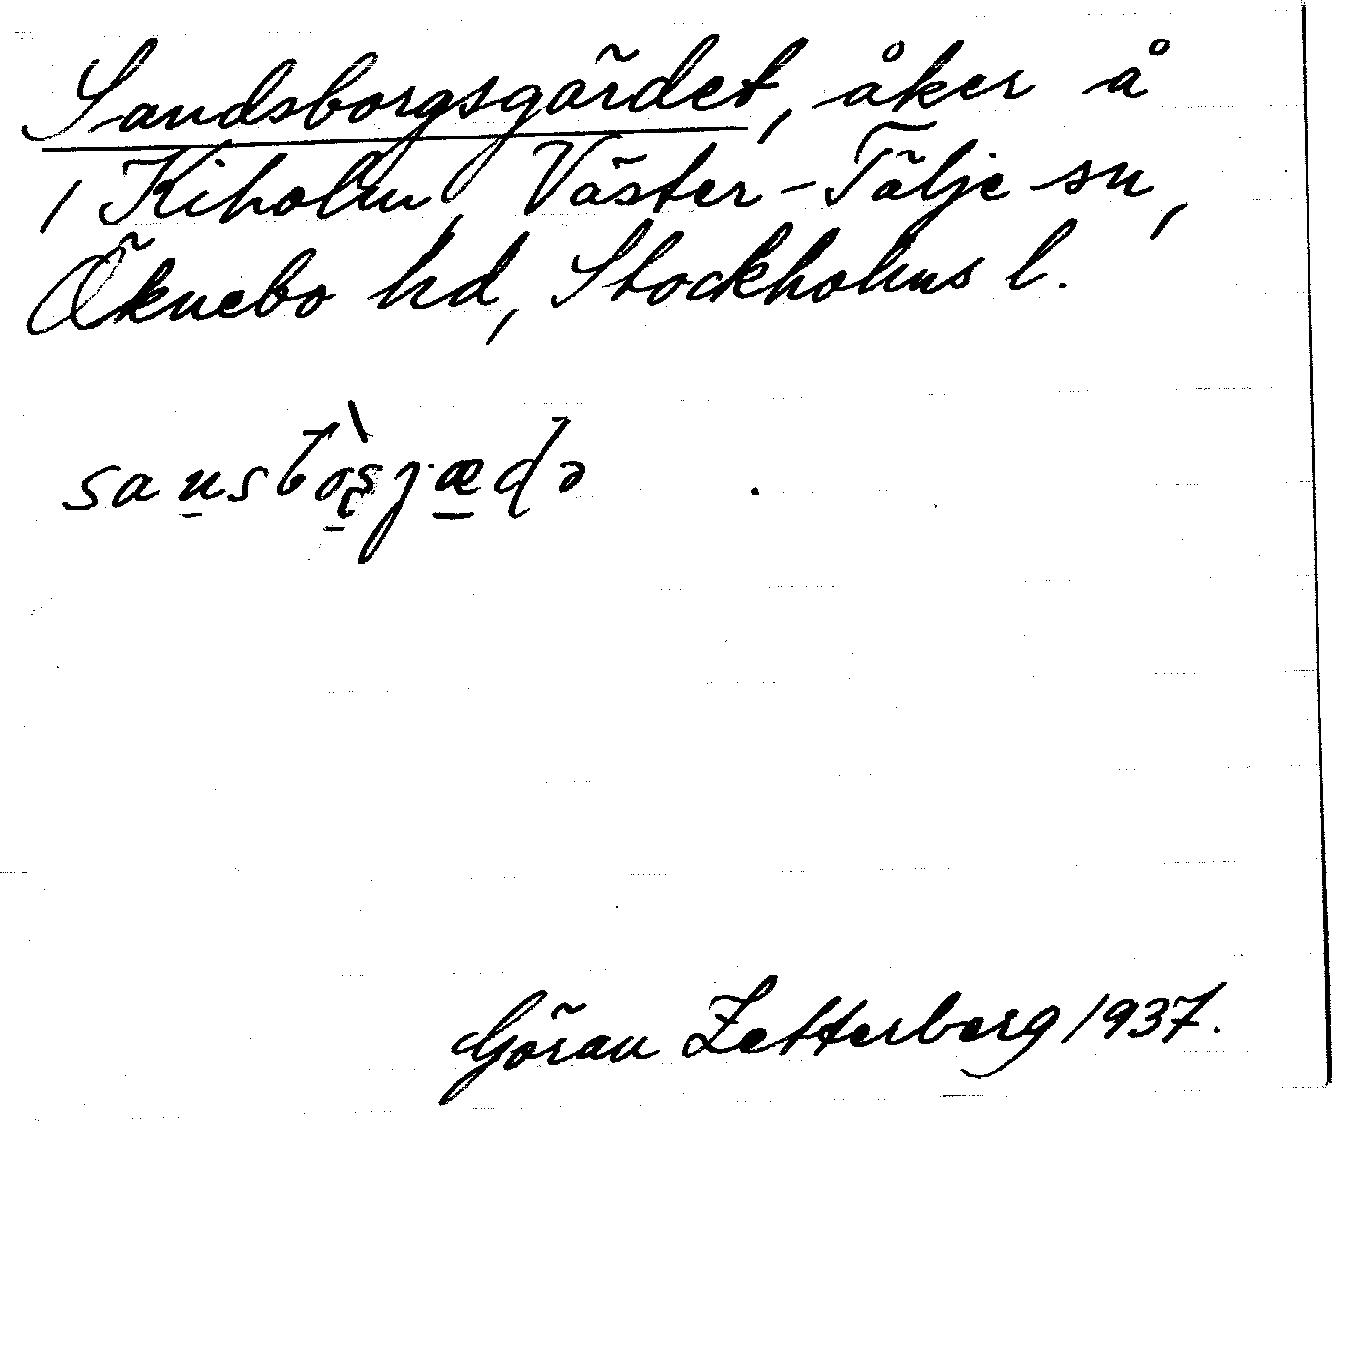 Sandsborgsgärdet, åker å
/ Kiholm, Väster-Tälje sn,
Öknebo hd, Stockholms l.
Göran Zetterberg 1937.